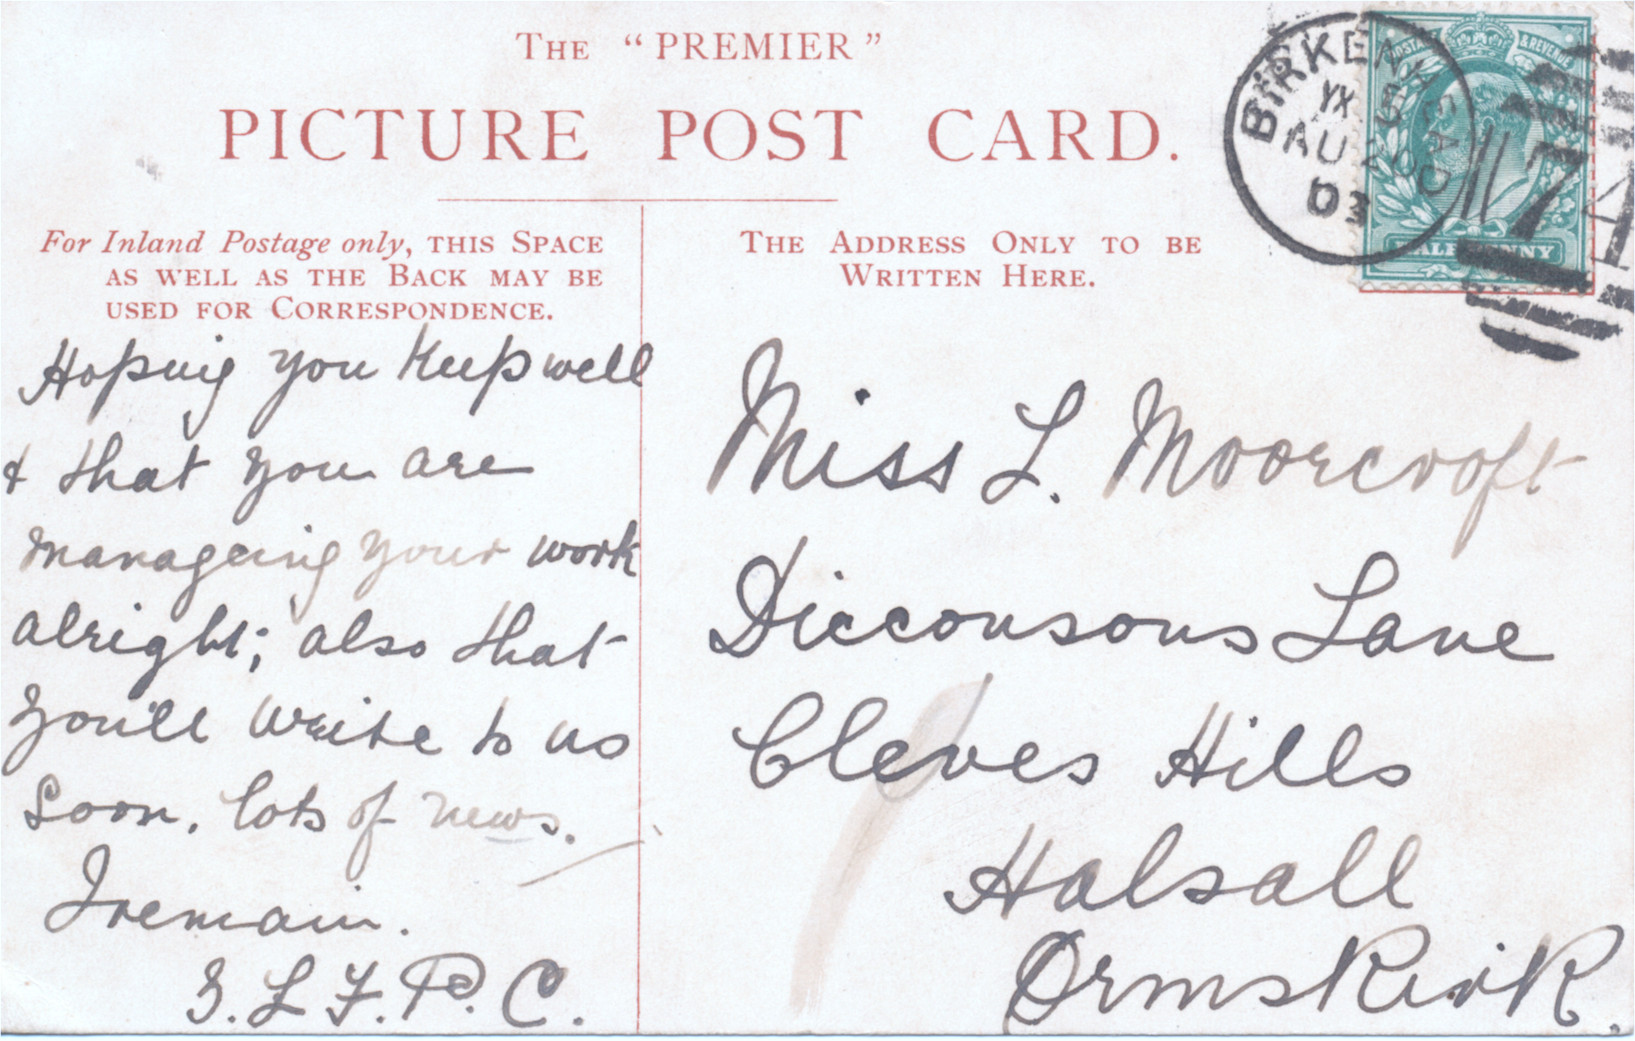 The "PREMIER"
PICTURE POST CARD.
For Inland Postage only, THIS SPACE
AS WELL AS THE BACK MAY BE
USED FOR CORRESPONDENCE.
Hoping you keep well
& that you are
manageing your work
alright; also that
you'll write to us
soon. lots of news.
I remain.
L. F. P. C.
THE ADDRESS ONLY TO BE
WRITTEN HERE.
Miss L. Moorcroft
Dicconsons Lane
Cleves Hills
Halsall
Ormskirk.
BIRKENHEAD
AU 20
03
74
POSTAGE & REVENUE
HALFPENNY